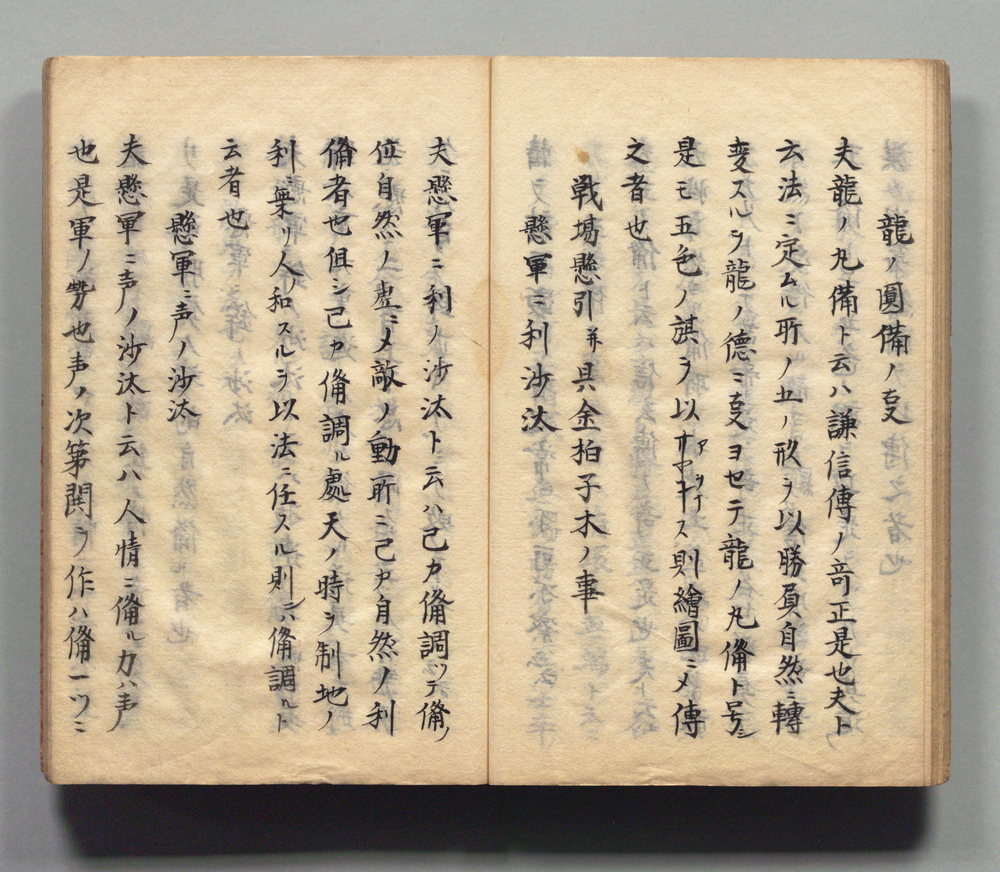 龍ノ圓備ノ支
夫龍ノ丸備ト云ハ謙信傳ノ竒正是也夫ト
六法ニ定ムル所ノ五ノ形ヲ以勝負自然ニ轉
変スルヲ龍ノ德ニ支ヨセテ龍ノ丸備ト号シ
是モ五色ノ旗ヲ以サヤキス則繪圖ニメ傳
之者也
戦場懸引并具金拍子木ノ事
懸軍ニ利沙汰
夫懸軍ニ利ノ沙汰ト云ハ己カ備調ツテ備ノ
位自然ノ虚ニメ敵ノ動所ニ己カ自然ノ利
備者也俱シ己カ備調ル處天ノ時ヲ制地ノ
利ニ乗リ人ノ和スルヲ以法ニ任スル則ンハ備調ルト
云者也
懸軍ニ声ノ沙汰
夫懸軍ニ声ノ沙汰ト云ハ人情ニ備ル力ハ声
也是軍ノ勢也声ノ次第鬨ヲ作ハ備一ツニ